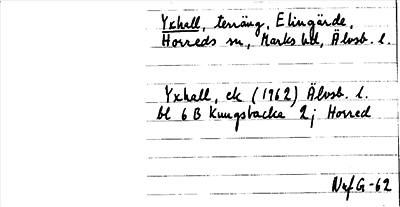 Yxhall, terräng, Elingärde,
Horreds sn, Marks hd, Älvsb. l.
Yxhall, ek (1962) Älvsb. l.
bl 6 B Kungsbacka 2j Horred
NvfG-62